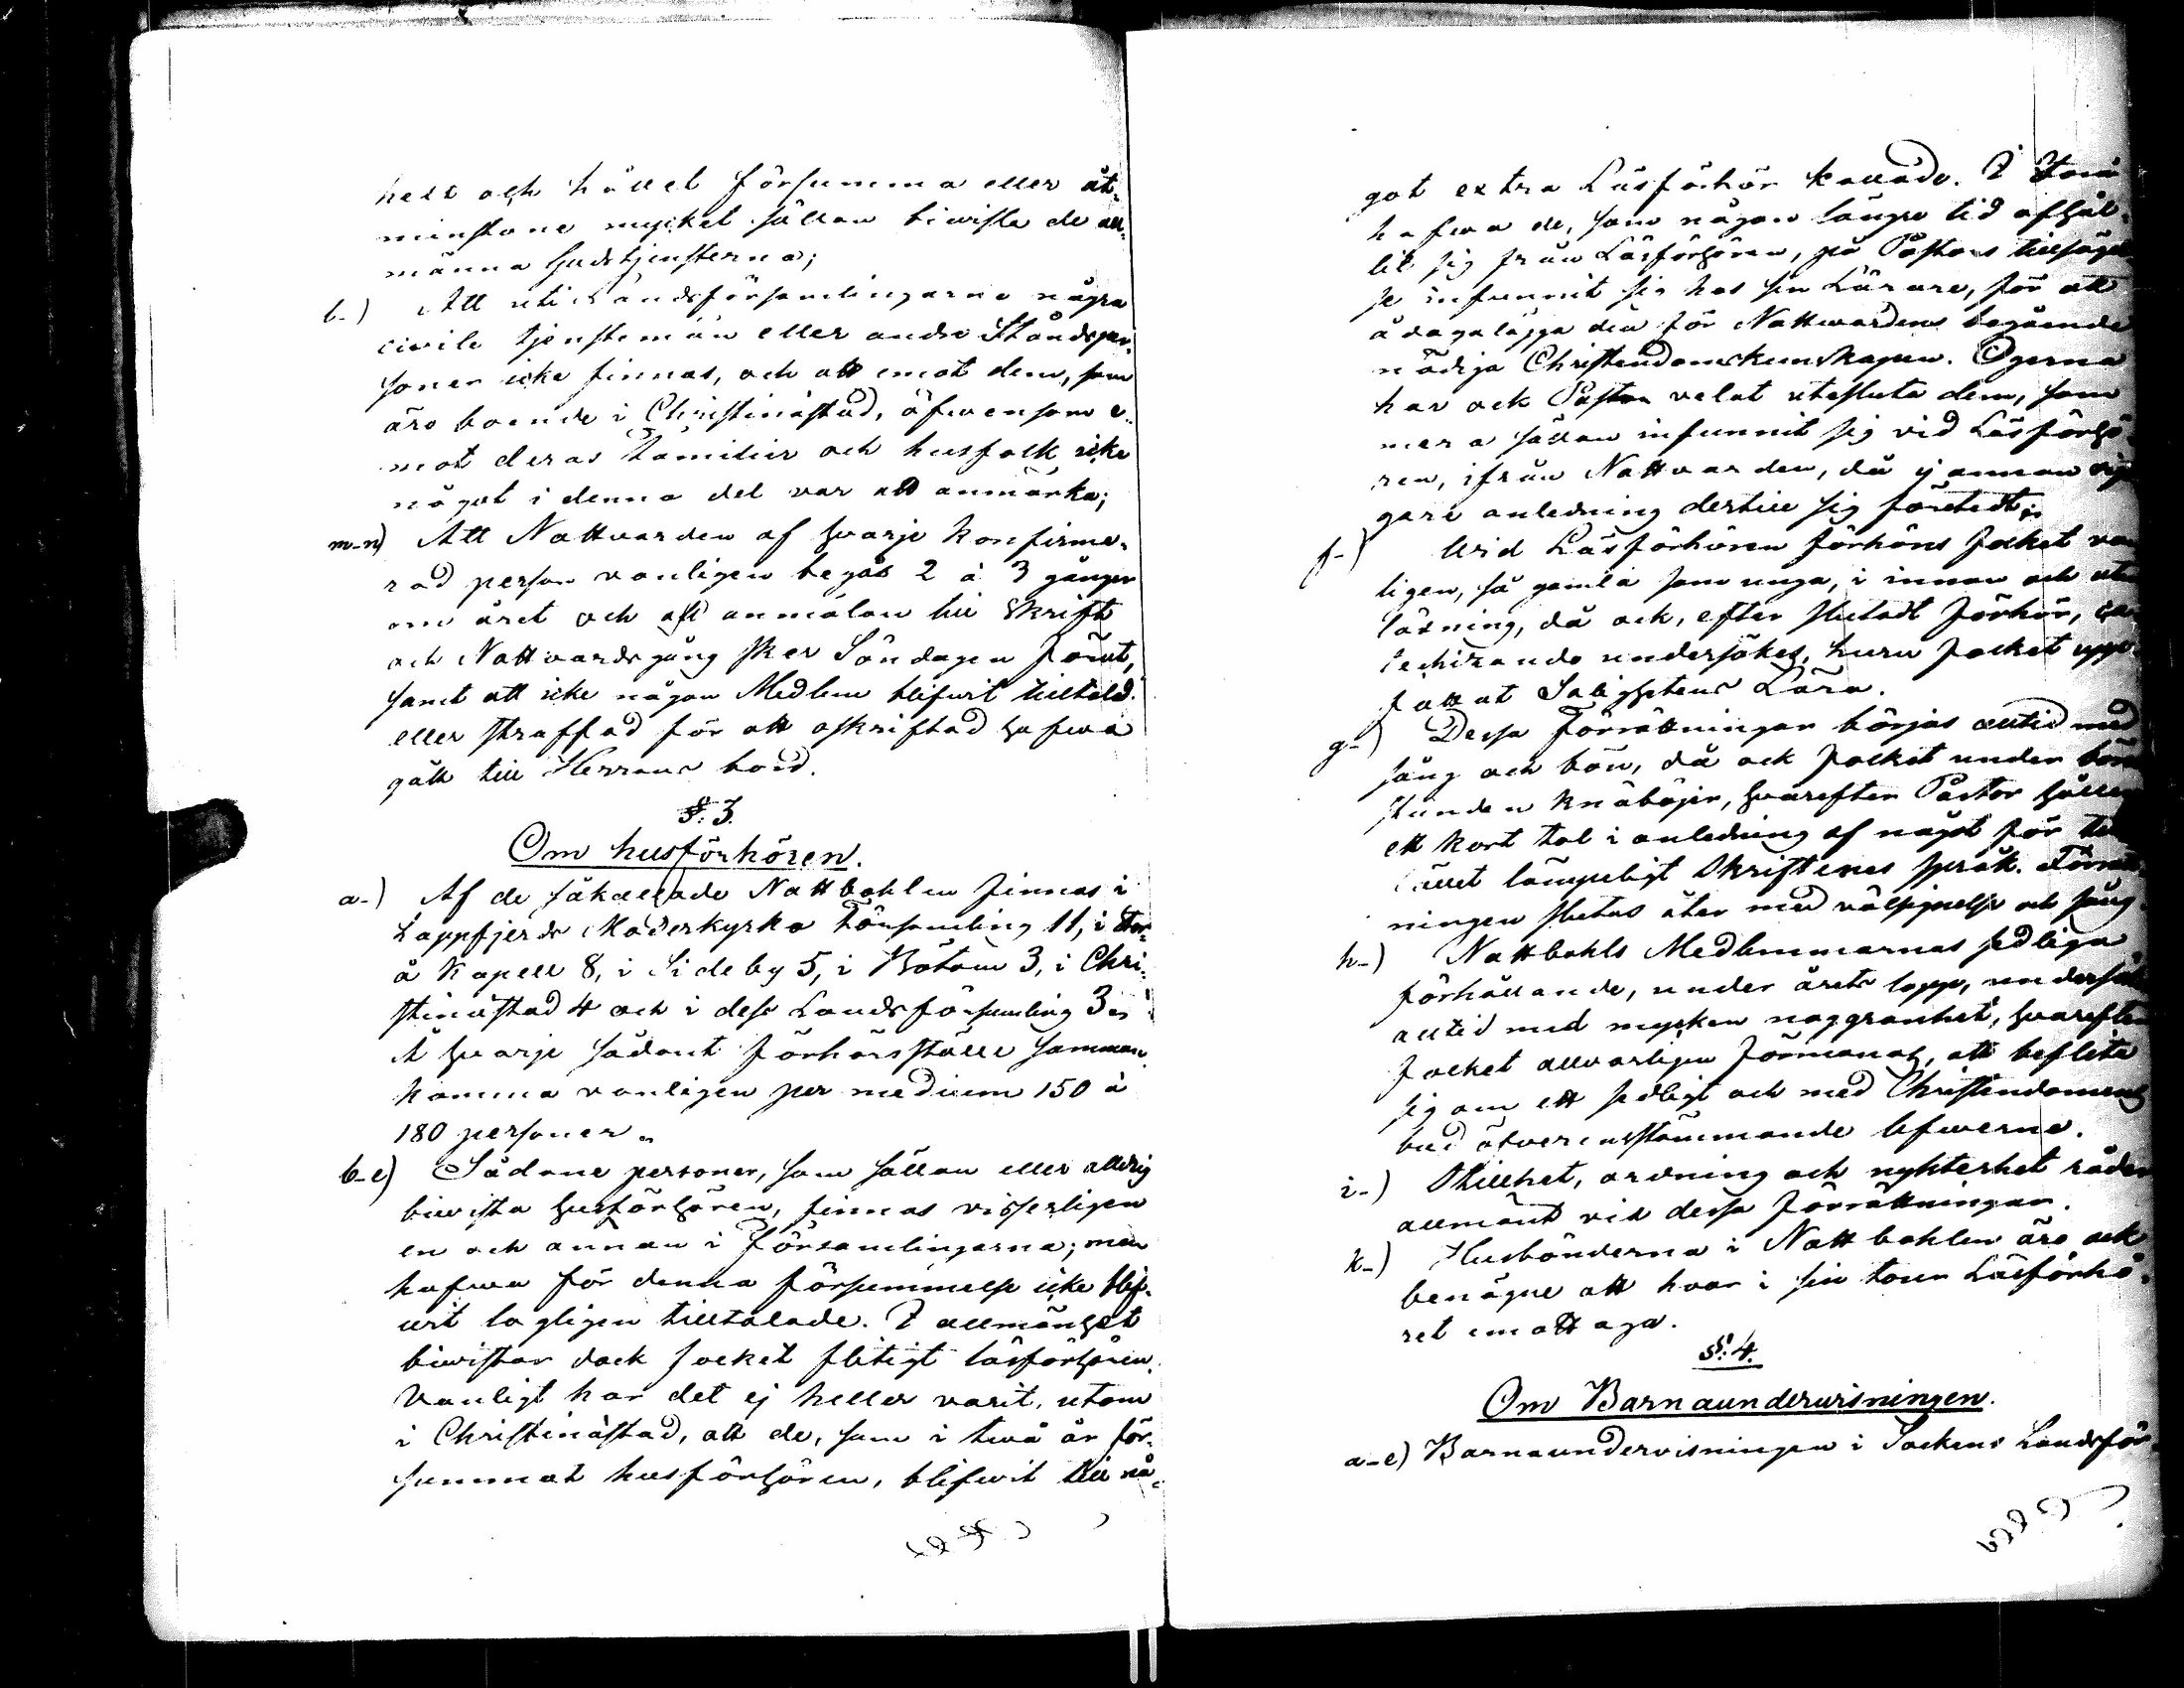 helt och hållet försumma eller åt-
minstone mycket sällan biwista de all-
männa Gudstjensterna;
l.) Att uti Landsförsamlingarna några
civile tjenstemän eller andre Ståndsper-
soner icke finnas, och att emot dem, som
äro boende i Christinästad, äfwensom e-
mot deras Familier och husfolk icke
något i denna del var att anmärka;
m-n) Att Nattvarden af hvarje konfirme-
rad person vanligen begås 2 à 3 gånger
om året och att anmälan till Skrift
och Nattvardsgång sker Söndagen förut,
samt att icke någon Medlem blifwit tilltald
eller straffad för att oskriftad hafwa
gått till Herrans bord.
§. 3.
Om husförhören.
a-) Af de såkallade Nattbohlen finnas i
Lappfjerds Moderkyrko Församling 11, i Stor-
å Kapell 8, i Sideby 5, i Bötom 3, i Chri-
stinästad 4 och i dess Landsförsamling 3.
Å hvarje sådant förhörsställe samman-
komma vanligen per medium 150 à
180 personer.
b-e) Sådane personer, som sällan eller aldrig
biwista husförhören, finnas visserligen
en och annan i Församlingarna; men
hafwa för denna försummelse icke blif-
wit lagligen tilltalade. I allmänhet
biwistar dock folket flitigt läsförhören.
Vanligt har det ej heller varit, utom
i Christinästad, att de, som i twå år för-
summat husförhören, blifwit till nå-
got extra Läsförhör kallade. I Storå
hafwa de, som någon längre tid afhål-
lit sig från Läsförhören, på Pastors tillsägel-
se infunnit sig hos sin Lärare, för att
ådagalägga den för Nattwardens begående
nödiga Christendomskunskapen. Ogerna
har ock Pastor velat utesluta dem, som
mera sällan infunnit sig vid Läsförhö-
ren, ifrån Nattvarden, då ej annan
gare anledning dertill sig företedt.
f-) Wid Läsförhören förhöres folket van
ligen, så gamla som unga, i innan och utan
läsning, då ock, efter slutadt förhör, ca-
techizando undersökes, huru folket upp-
fattat Salighetens Lära.
g-) Dessa Förrättningar börjas alltid med
sång och bön, då ock folket under böne
stunden knäböjer, hvarefter Pastor håller
ett kort tal i anledning af något för
fället lämpeligt Skriftenes språk. Förrätt
ningen slutas åter med välsignelse och sång.
h-) Nattbohls Medlemmarnas sedliga
förhållande, under årets lopp, undersökes
alltid med mycken noggranhet, hvarefter
folket allvarligen förmanas, att beflita
sig om ett sedligt och med Christendomens
bud öfverensstämmande lefwerne.
i-) Stillhet, ordning och nykterhet råder
allmänt vid dessa förrättningar.
k-) Husbönderna i Nattbohlen äro ock
benägne att hvar i sin tour Läsförhö-
ret emottaga.
§. 4.
Om Barnaunderwisningen.
a-e) Barnaundervisningen i Sockens Landsför